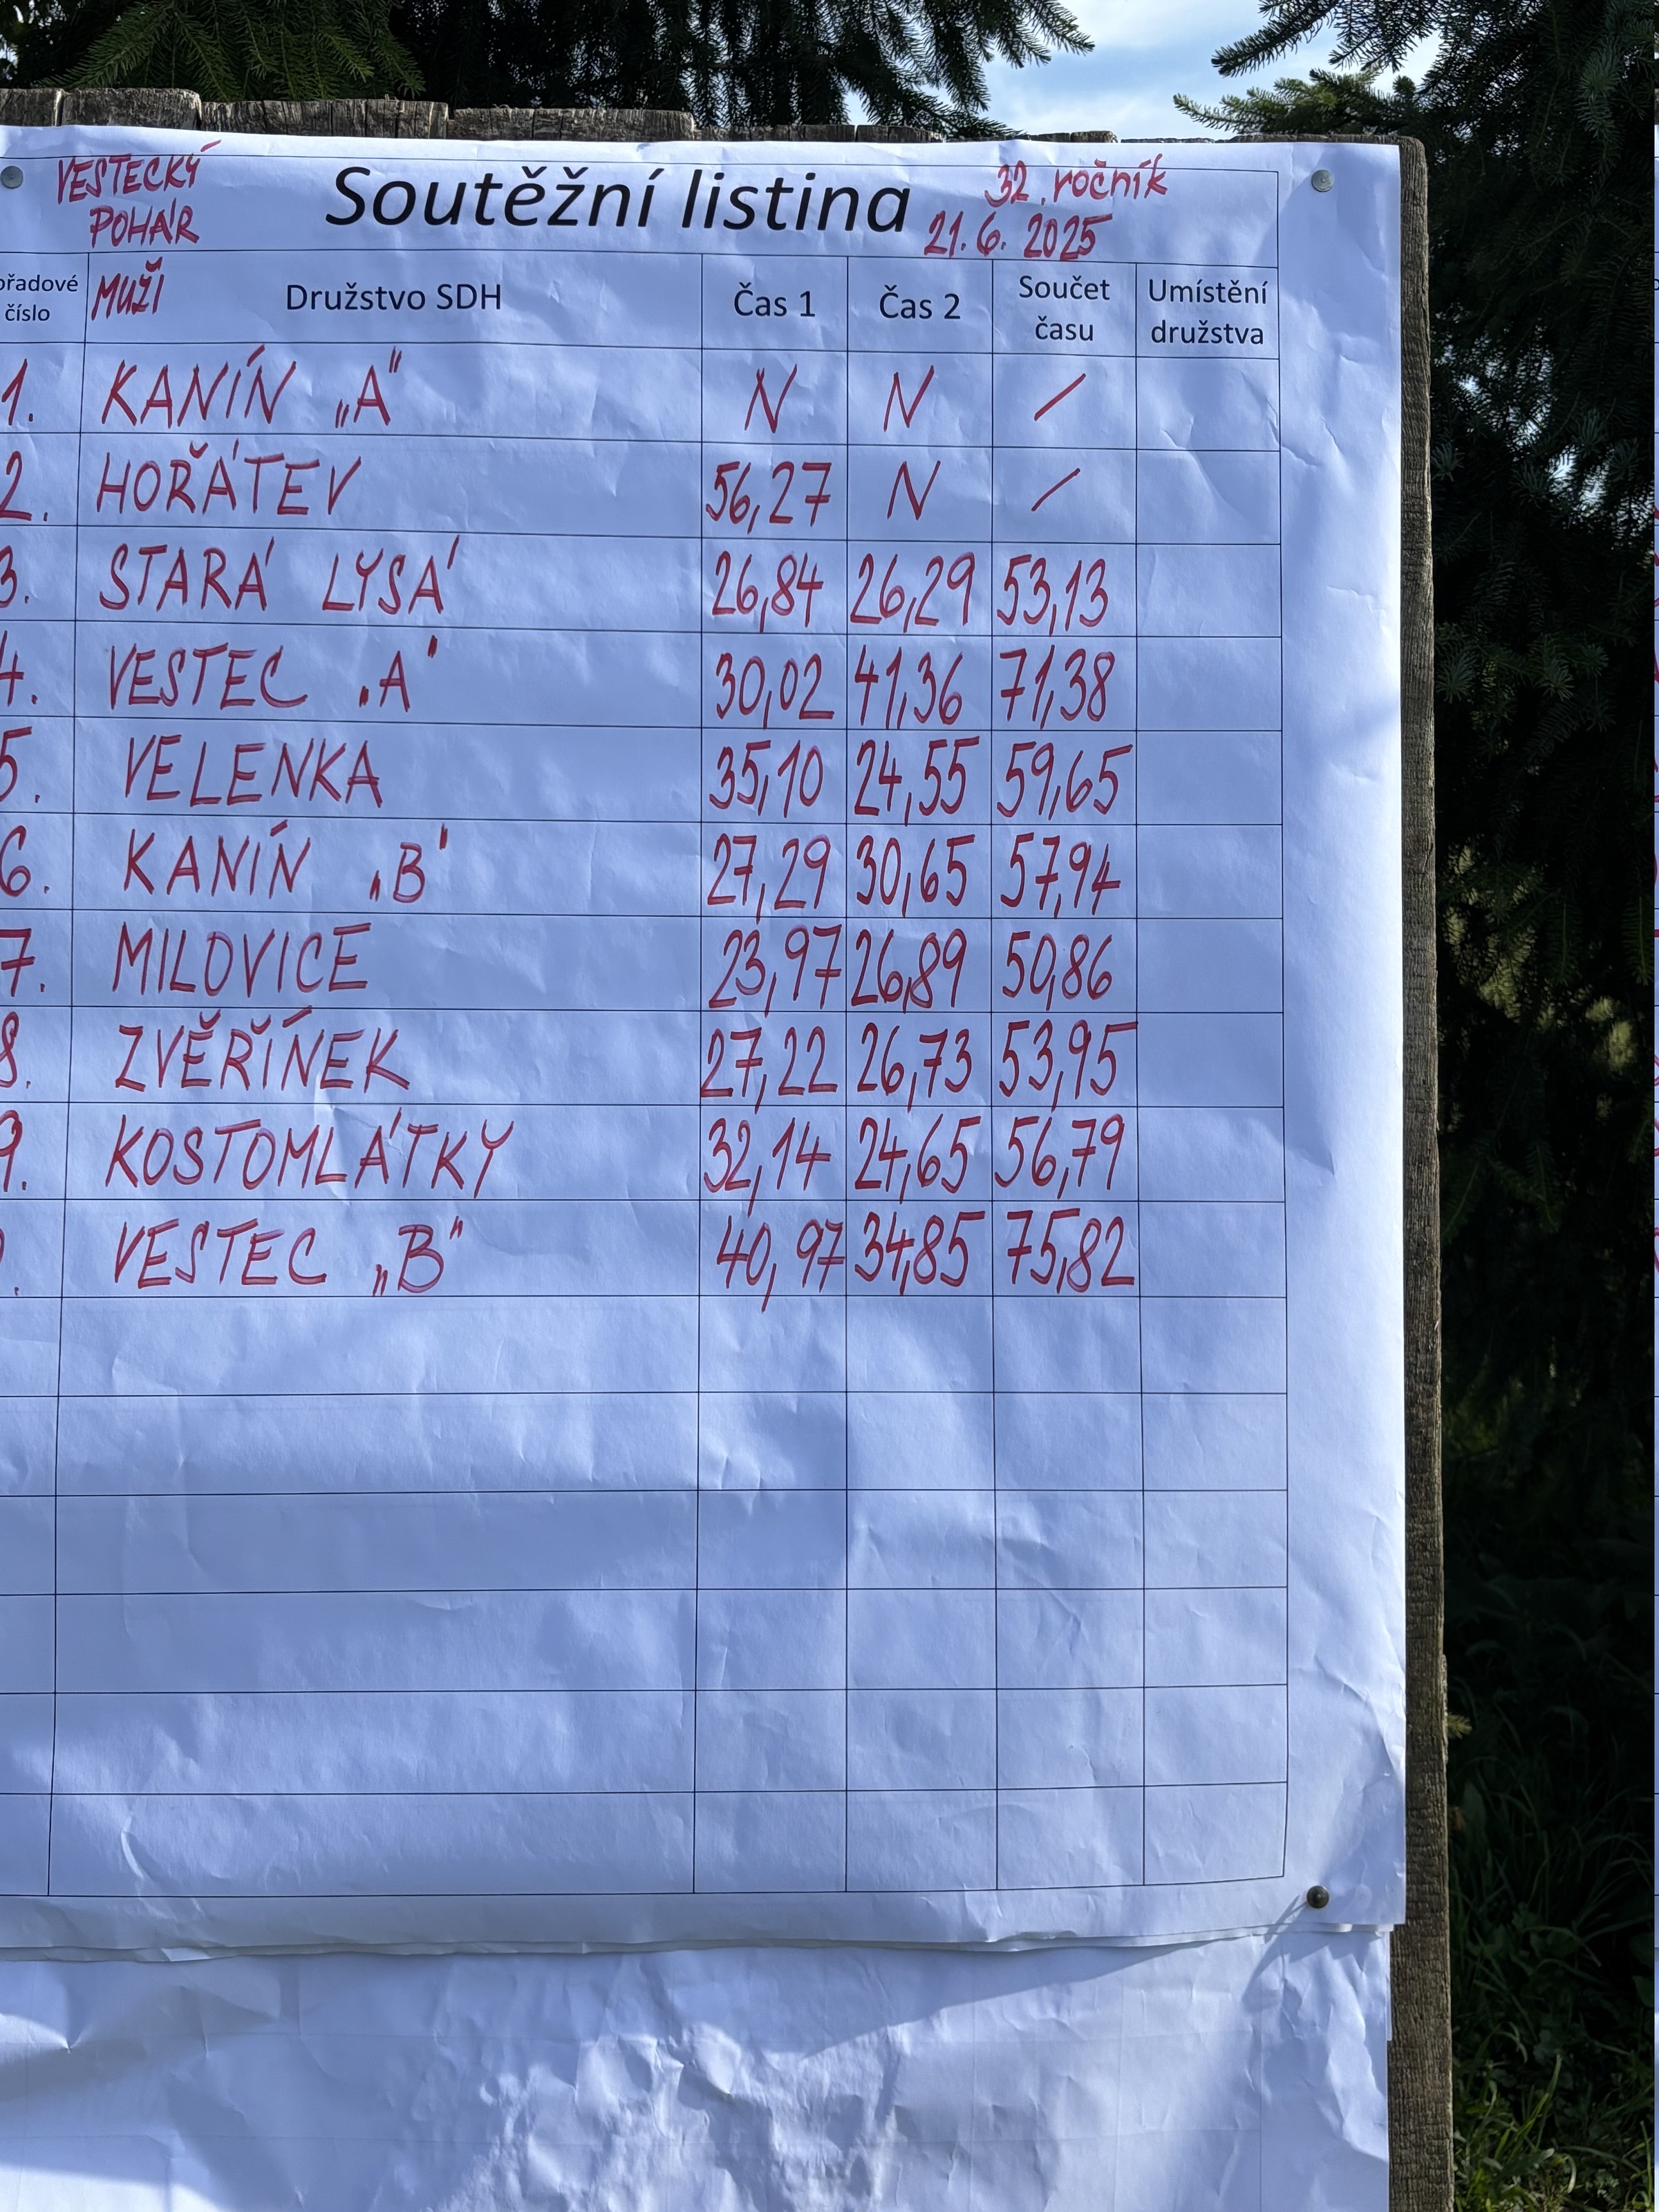 VESTECKÝ POHÁR Soutěžní listina 32. ročník 21.6.2025
číslo MUŽI Družstvo SDH Čas 1 Čas 2 Součet času Umístění družstva
1. KANÍN „A" N N /
2. HOŘÁTEV 56,27 N /
3. STARÁ LYSÁ 26,84 26,29 53,13
4. VESTEC „A" 30,02 41,36 71,38
5. VELENKA 35,10 24,55 59,65
6. KANÍN „B" 27,29 30,65 57,94
7. MILOVICE 23,97 26,89 50,86
8. ZVĚŘÍNEK 27,22 26,73 53,95
9. KOSTOMLÁTKY 32,14 24,65 56,79
VESTEC „B" 40,97 34,85 75,82